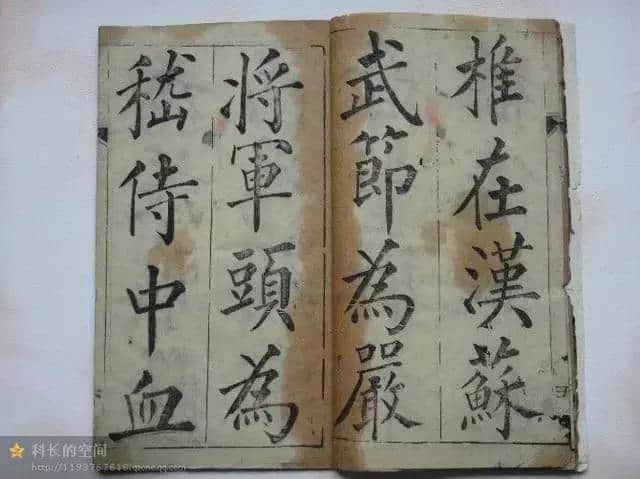 椎在漢蘇
武節為嚴
將軍頭為
嵇侍中血
科长的空间
http://1193767618.qzone.qq.com